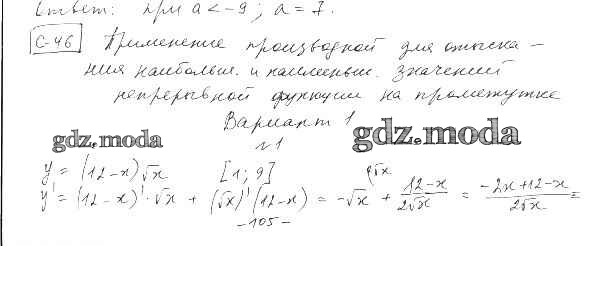 Ответ: при a < -9; a = 7.
С-46 Применение производной для отыска-
ния наибольш. и наименьш. значений
непрерывной функции на промежутке
Вариант 1
gdz.moda
gdz.moda
№1
y = (12-x)√x [1; 9]
y' = (12-x)'·√x + (√x)'(12-x) = -√x + (12-x)/(2√x) = (-2x+12-x)/(2√x) =
-105-